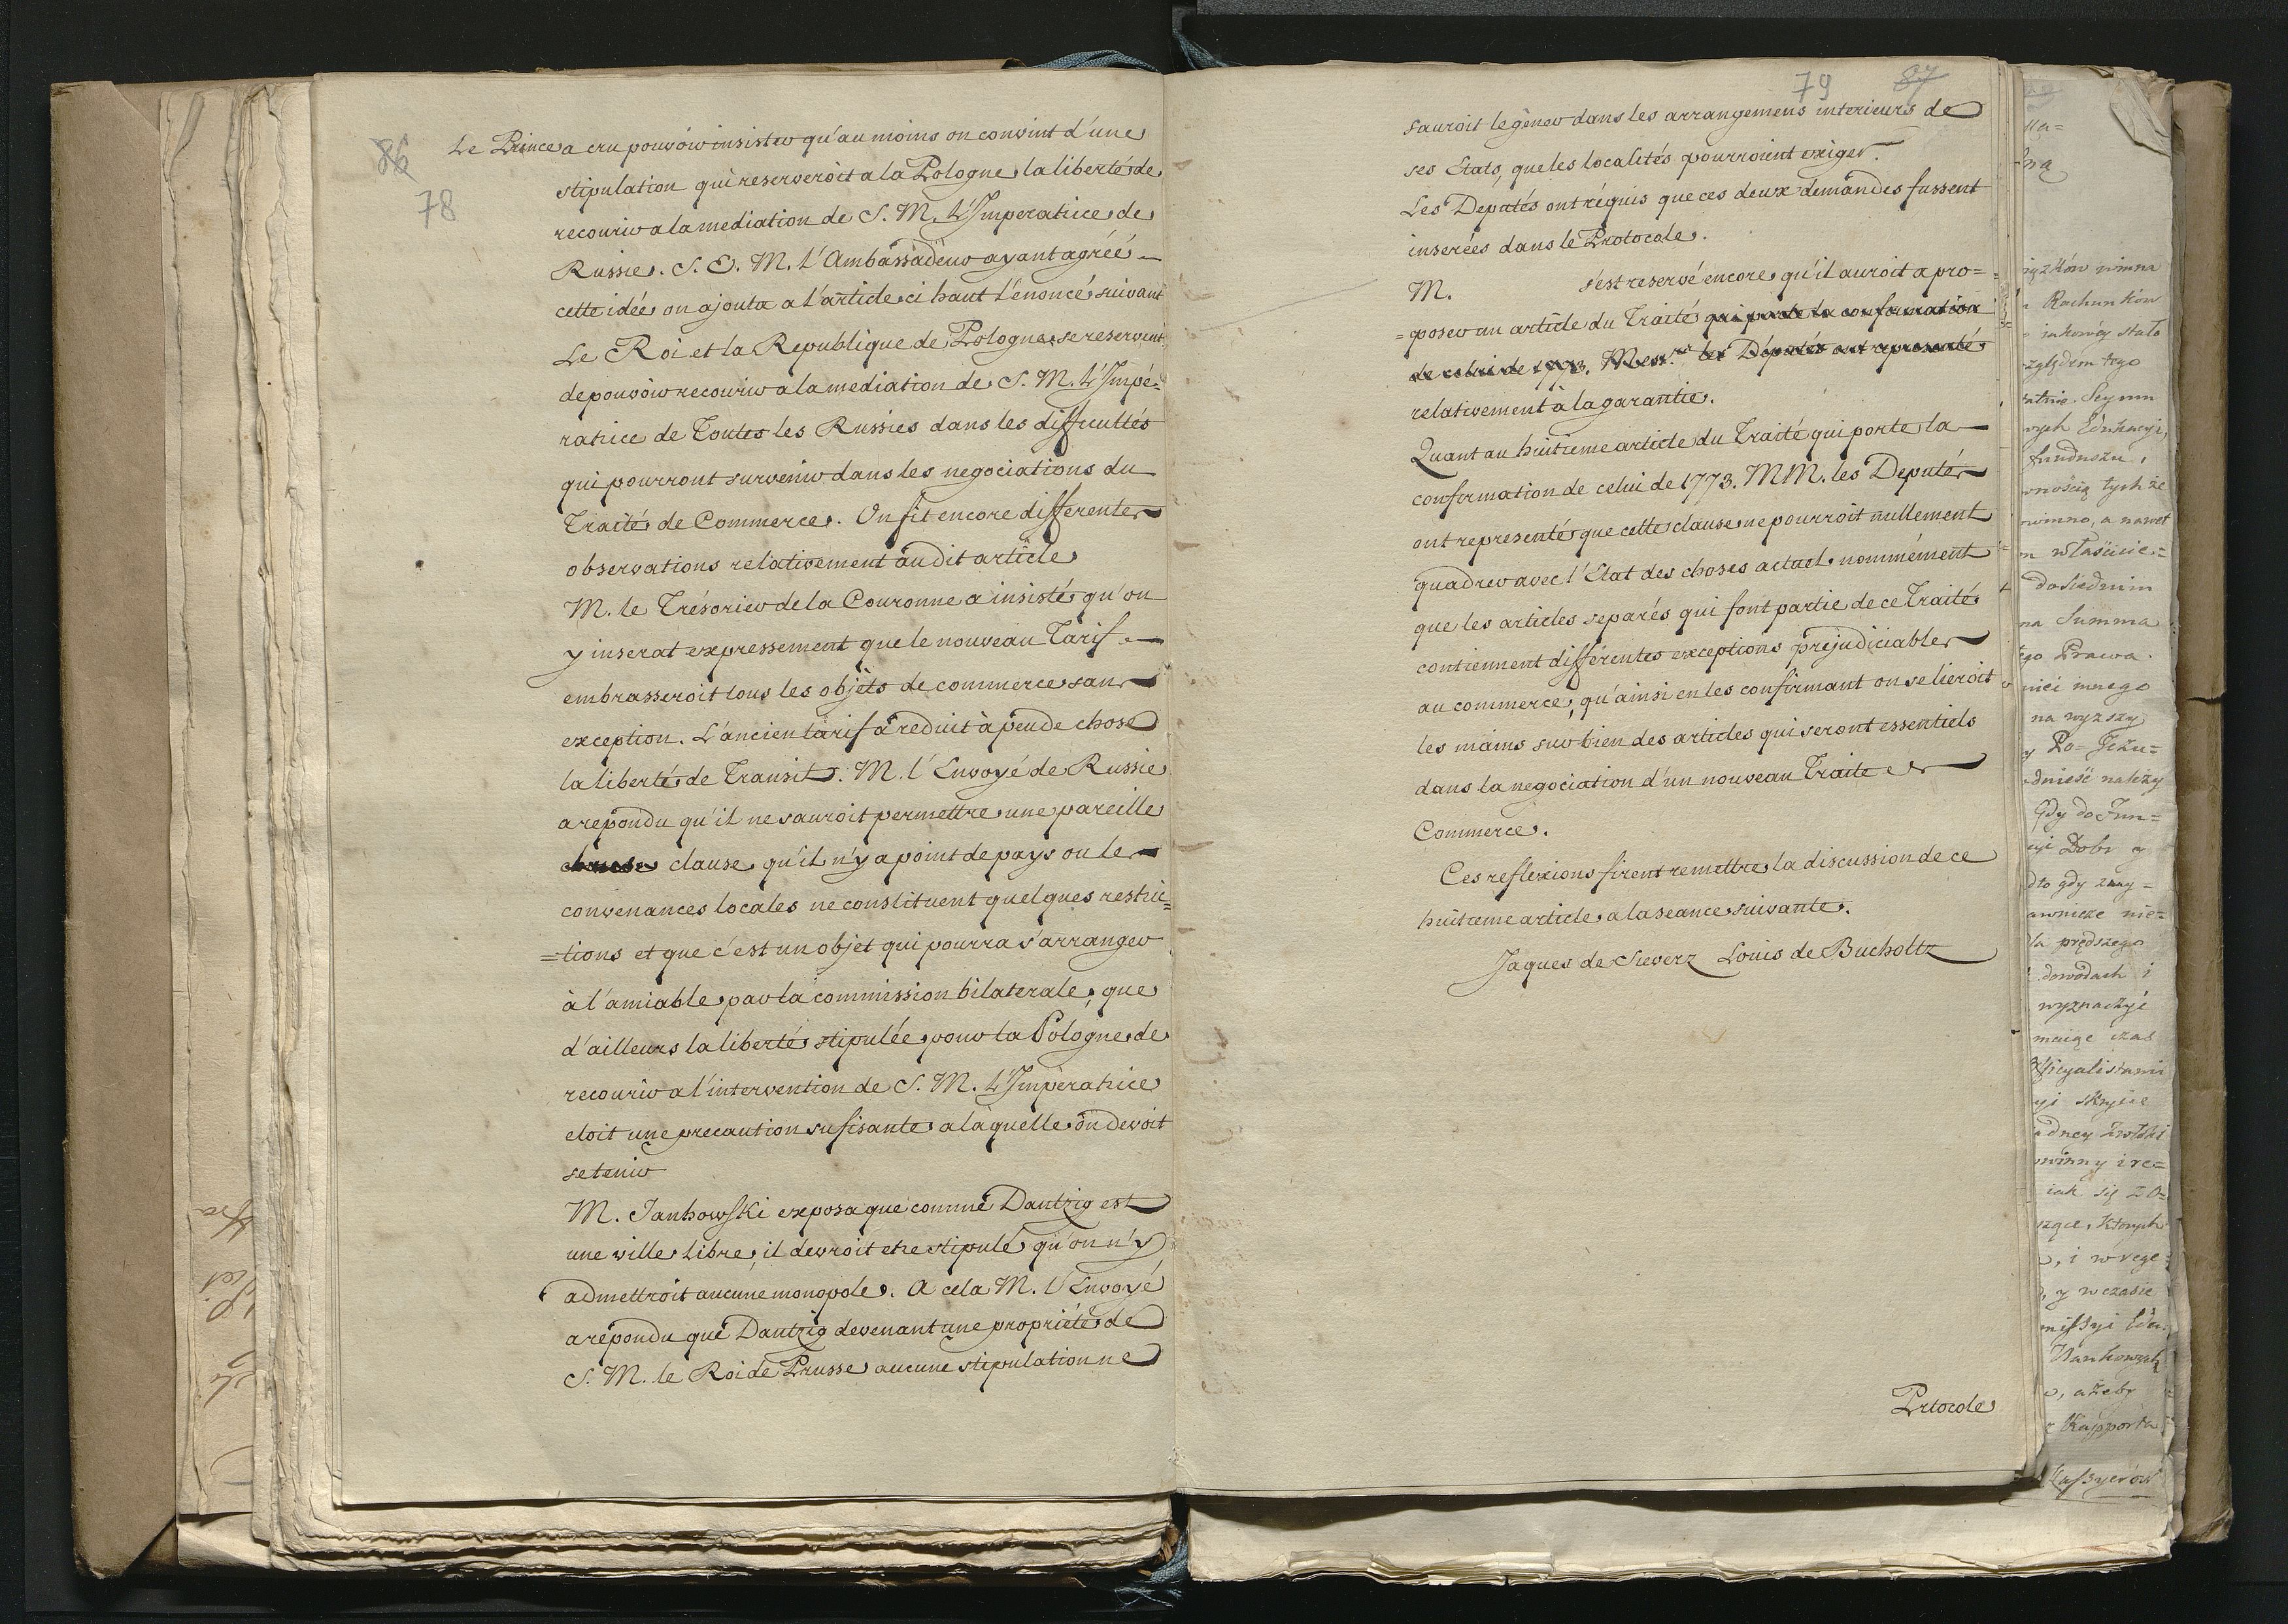 86
78
Le Prince a cru pouvoir insister qu'au moins on convint d'une
stipulation qui reserveroit a la Pologne la liberté de
recourir a la mediation de S. M. L'Imperatrice de
Russie. S. E. M. l'Ambassadeur ayant agréé
cette idée on ajouta a l'article ci haut l'énoncé suivant
Le Roi et la Republique de Pologne se reservent
de pouvoir recourir a la mediation de S. M. L'Impé-
ratrice de Toutes les Russies dans les difficultés
qui pourront survenir dans les negociations du
Traité de Commerce. On fit encore differentes
observations relativement au dit article
M. le Trésorier de la Couronne a insisté qu'on
y inserat expressement que le nouveau Tarif
embrasseroit tous les objets de commerce sans
exception. L'ancien tarif a reduit à peu de chose
la liberté de Transit. M. l'Envoyé de Russie
a repondu qu'il ne sauroit permettre une pareille
clause qu'il n'y a point de pays ou les
convenances locales ne constituent quelques restric=
=tions et que c'est un objet qui pourra s'arranger
à l'amiable par la commission bilaterale, que
d'ailleurs la liberté stipulée pour la Pologne de
recourir a l'intervention de S. M. L'Imperatrice
etoit une precaution sufisante a laquelle on devoit
se tenir
M. Jankowski exposa que comme Dantzig est
une ville libre, il devroit etre stipulé qu'on n'y
admettroit aucune monopole. A cela M. l'Envoyé
a repondu que Dantzig devenant une propriété de
S. M. le Roi de Prusse aucune stipulation ne
79 87
sauroit le gèner dans les arrangemens interieurs de
ses Etats, que les localités pourroient exiger.
Les Deputés ont réquis que ces deux demandes fussent
inserées dans le Protocole.
M. s'est reservé encore qu'il auroit a pro=
=poser un article du Traité qui porte la confirmation
de celui de 1773. Mess.rs les Députés ont representé
relativement à la garantie.
Quant au huitieme article du Traité qui porte la
confirmation de celui de 1773. MM. les Deputés
ont representé que cette clause ne pourroit nullement
quadrer avec l'Etat des choses actuel nommément
que les articles separés qui font partie de ce Traité
contiennent différentes exceptions préjudiciables
au commerce, qu'ainsi en les confirmant on se lieroit
les mains sur bien des articles qui seront essentiels
dans la negociation d'un nouveau Traite de
Commerce.
Ces reflexions firent remettre la discussion de ce
huitieme article a la seance suivante.
Jaques de Sieverz Louis de Bucholtz
Prtocole
Rachunków
stało
Seymu
Edukacyi,
tych że
a nawet
Summa
Prawa
innego
na wyższy
należy
prędszego
dowodach i
wyznaczyć
czas
iak się
których
y w czasie
ażeby